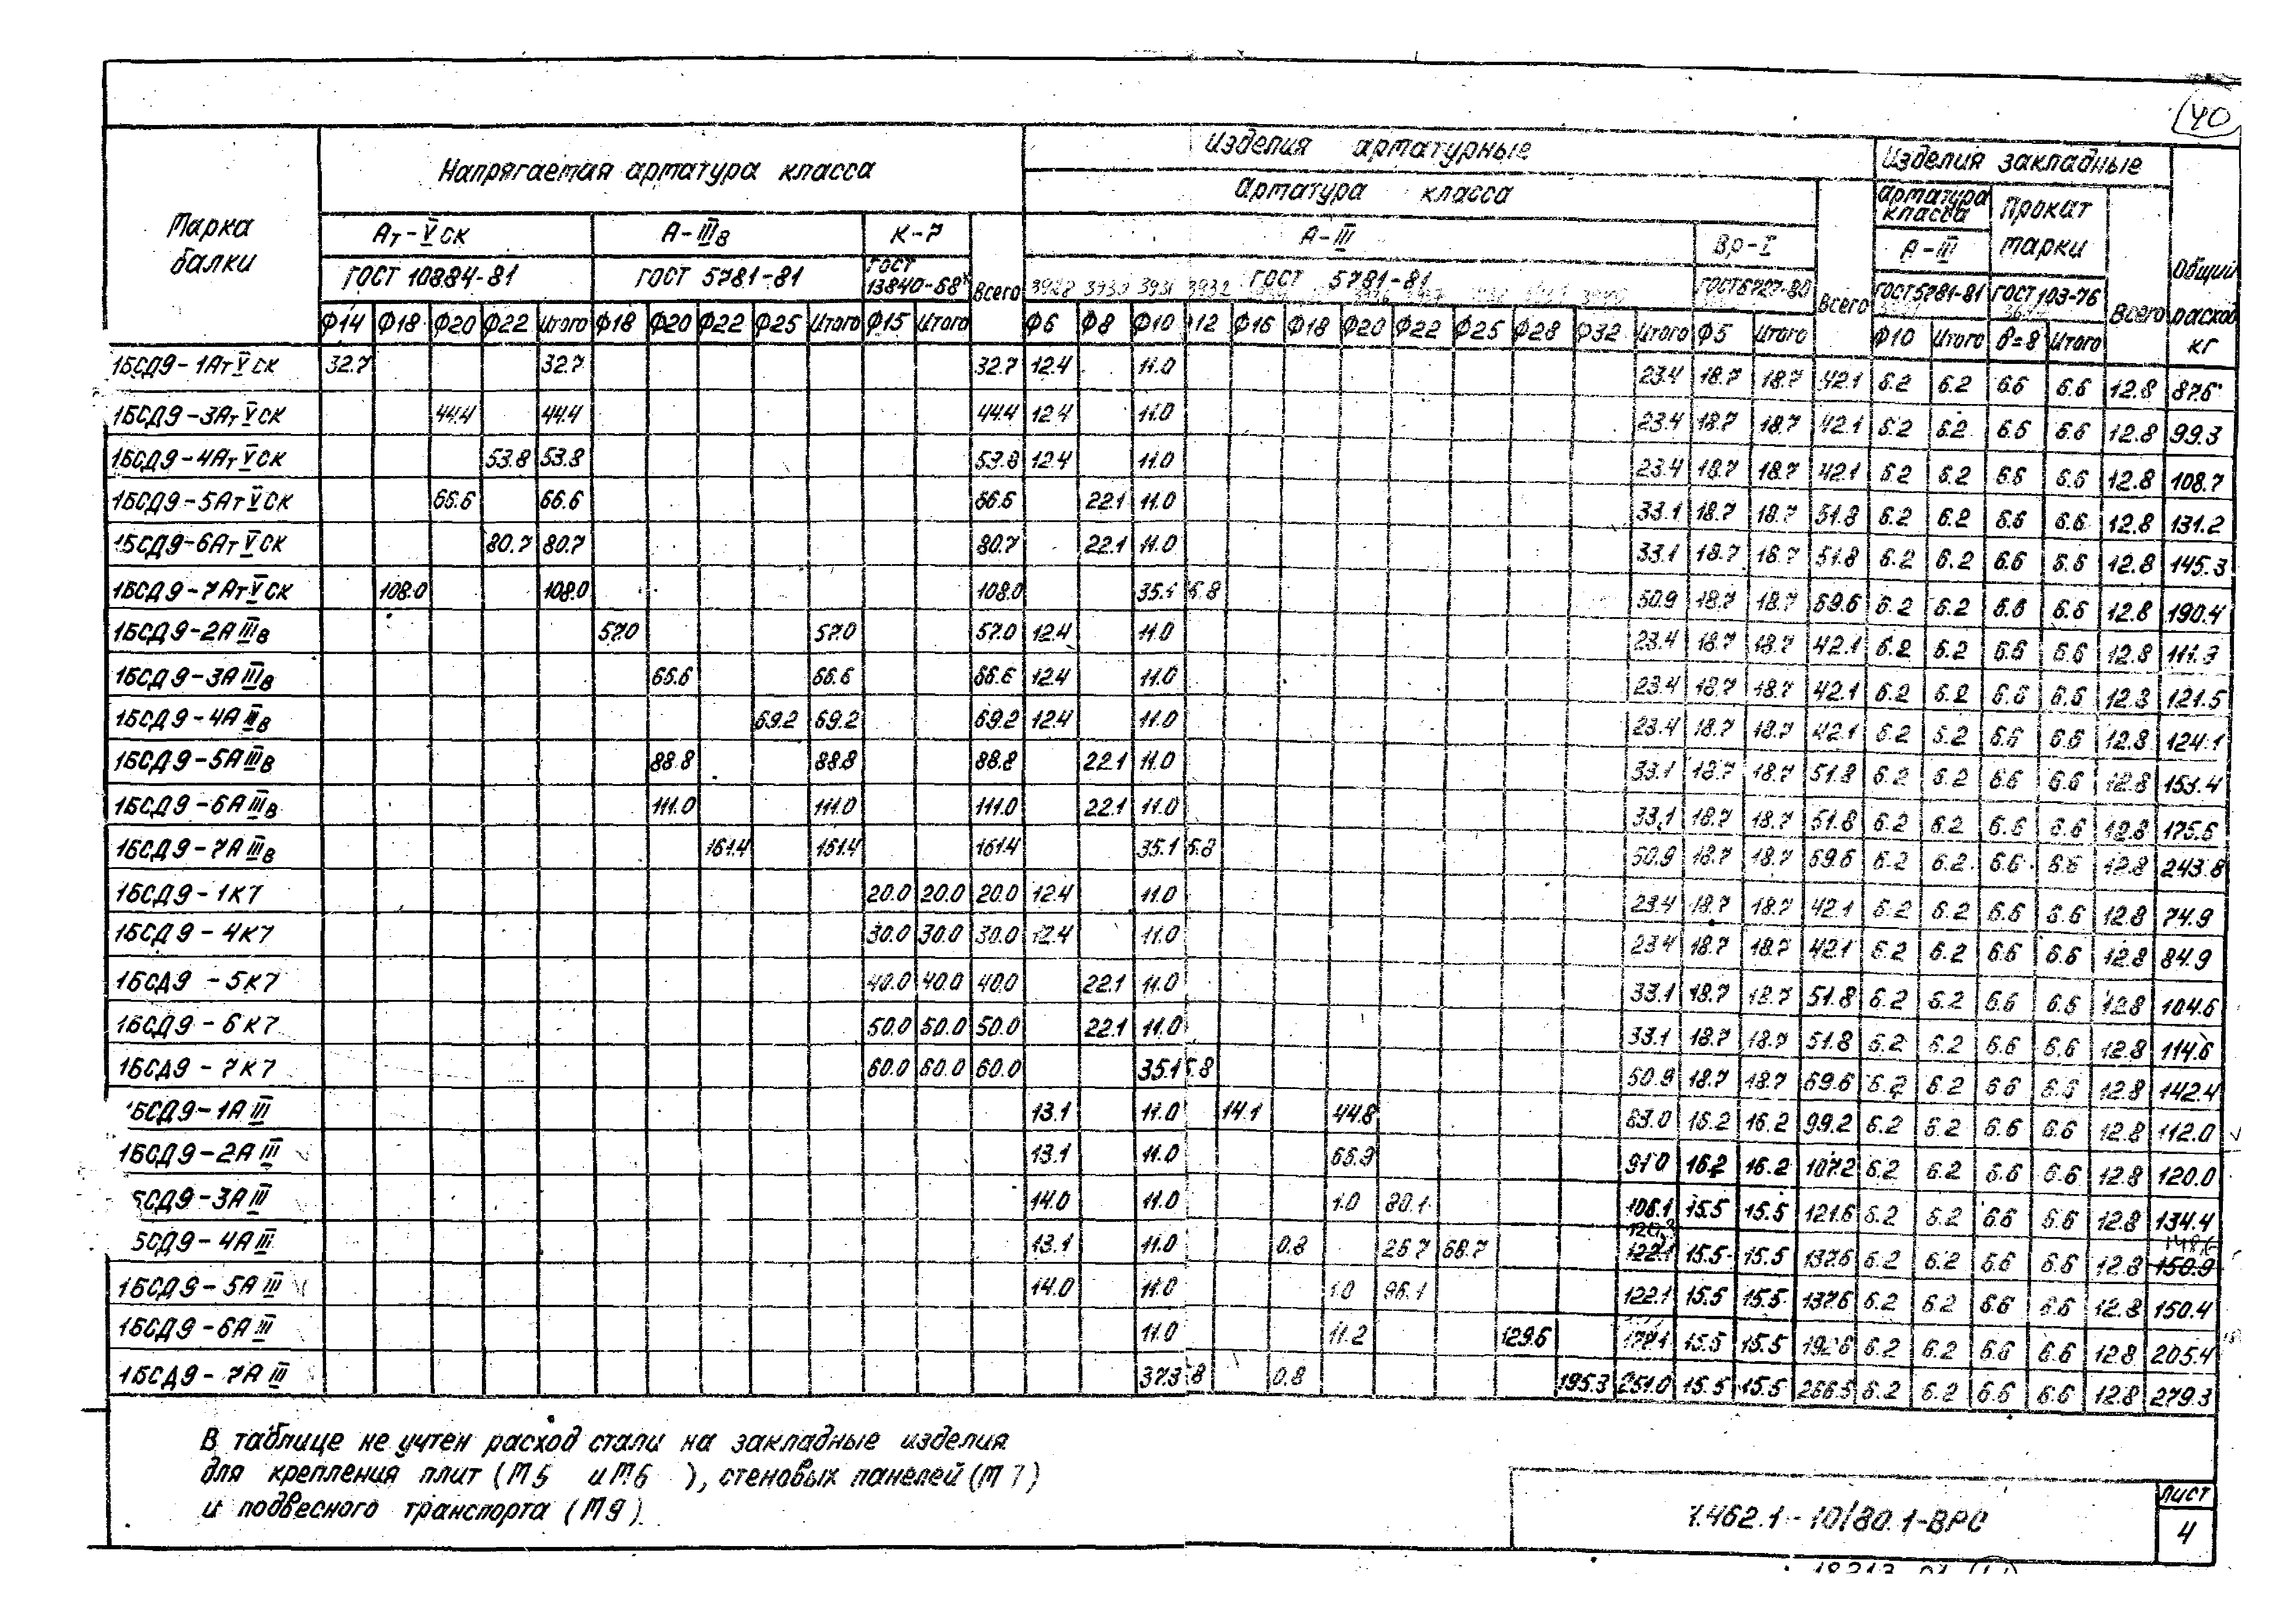 40
Марка балки
Напрягаемая арматура класса
Изделия арматурные
Изделия закладные
Общий расход кг
Арматура класса
Арматура класса
Прокат марки
Ат-Ⅴ СК
А-Ⅲв
К-7
Всего
А-Ⅲ
Вр-Ⅰ
Всего
А-Ⅲ
Всего
ГОСТ 10884-81
ГОСТ 5781-81
ГОСТ 13840-68*
3927 3930 3931 3932 ГОСТ 5781-81
ГОСТ 6727-80
ГОСТ 5781-81
ГОСТ 103-76
Ф14 Ф18 Ф20 Ф22 Итого Ф18 Ф20 Ф22 Ф25 Итого Ф15 Итого Ф6 Ф8 Ф10 12 Ф16 Ф18 Ф20 Ф22 Ф25 Ф28 Ф32 Итого Ф5 Итого Ф10 Итого δ=8 Итого
1БСД9-1Ат Ⅴ СК 32.7 32.7 32.7 12.4 11.0 23.4 18.7 18.7 42.1 6.2 6.2 6.6 6.6 12.8 87.6
1БСД9-3Ат Ⅴ СК 44.4 44.4 44.4 12.4 11.0 23.4 18.7 18.7 42.1 6.2 6.2 6.6 6.6 12.8 99.3
1БСД9-4Ат Ⅴ СК 53.8 53.8 53.8 12.4 11.0 23.4 18.7 18.7 42.1 6.2 6.2 6.6 6.6 12.8 108.7
1БСД9-5Ат Ⅴ СК 66.6 66.6 66.6 22.1 11.0 33.1 18.7 18.7 51.8 6.2 6.2 6.6 6.6 12.8 131.2
1БСД9-6Ат Ⅴ СК 80.7 80.7 80.7 22.1 11.0 33.1 18.7 18.7 51.8 6.2 6.2 6.6 6.6 12.8 145.3
1БСД9-7Ат Ⅴ СК 108.0 108.0 108.0 35.1 5.8 50.9 18.7 18.7 69.6 6.2 6.2 6.6 6.6 12.8 190.4
1БСД9-2АⅢв 57.0 57.0 57.0 12.4 11.0 23.4 18.7 18.7 42.1 6.2 6.2 6.6 6.6 12.8 111.9
1БСД9-3АⅢв 66.6 66.6 66.6 12.4 11.0 23.4 18.7 18.7 42.1 6.2 6.2 6.6 6.6 12.8 121.5
1БСД9-4АⅢв 69.2 69.2 69.2 12.4 11.0 23.4 18.7 18.7 42.1 6.2 6.2 6.6 6.6 12.8 124.1
1БСД9-5АⅢв 88.8 88.8 88.8 22.1 11.0 33.1 18.7 18.7 51.8 6.2 6.2 6.6 6.6 12.8 153.4
1БСД9-6АⅢв 111.0 111.0 111.0 22.1 11.0 33.1 18.7 18.7 51.8 6.2 6.2 6.6 6.6 12.8 175.6
1БСД9-7АⅢв 161.4 161.4 161.4 35.1 5.8 50.9 18.7 18.7 69.6 6.2 6.2 6.6 6.6 12.8 243.8
1БСД9-1К7 20.0 20.0 20.0 12.4 11.0 23.4 18.7 18.7 42.1 6.2 6.2 6.6 6.6 12.8 74.9
1БСД9-4К7 30.0 30.0 30.0 12.4 11.0 23.4 18.7 18.7 42.1 6.2 6.2 6.6 6.6 12.8 84.9
1БСД9-5К7 40.0 40.0 40.0 22.1 11.0 33.1 18.7 18.7 51.8 6.2 6.2 6.6 6.6 12.8 104.6
1БСД9-6К7 50.0 50.0 50.0 22.1 11.0 33.1 18.7 18.7 51.8 6.2 6.2 6.6 6.6 12.8 114.6
1БСД9-7К7 60.0 60.0 60.0 35.1 5.8 50.9 18.7 18.7 69.6 6.2 6.2 6.6 6.6 12.8 142.4
1БСД9-1АⅢ 13.1 11.0 14.1 44.8 83.0 16.2 16.2 99.2 6.2 6.2 6.6 6.6 12.8 112.0
1БСД9-2АⅢ 13.1 11.0 66.9 91.0 16.2 16.2 107.2 6.2 6.2 6.6 6.6 12.8 120.0
БСД9-3АⅢ 14.0 11.0 1.0 80.1 106.1 15.5 15.5 121.6 6.2 6.2 6.6 6.6 12.8 134.4
БСД9-4АⅢ 13.1 11.0 0.8 26.7 68.7 122.1 15.5 15.5 137.6 6.2 6.2 6.6 6.6 12.8 148,6 150.9
1БСД9-5АⅢ 14.0 11.0 1.0 96.1 122.1 15.5 15.5 137.6 6.2 6.2 6.6 6.6 12.8 150.4
1БСД9-6АⅢ 11.0 11.2 129.6 177.1 15.5 15.5 192.6 6.2 6.2 6.6 6.6 12.8 205.4
1БСД9-7АⅢ 37.3 8 0.8 195.3 251.0 15.5 15.5 266.5 6.2 6.2 6.6 6.6 12.8 279.3
В таблице не учтен расход стали на закладные изделия
для крепления плит (М5 и М6 ), стеновых панелей (М7)
и подвесного транспорта (М9).
1.462.1-10/80.1-ВРС
Лист
4